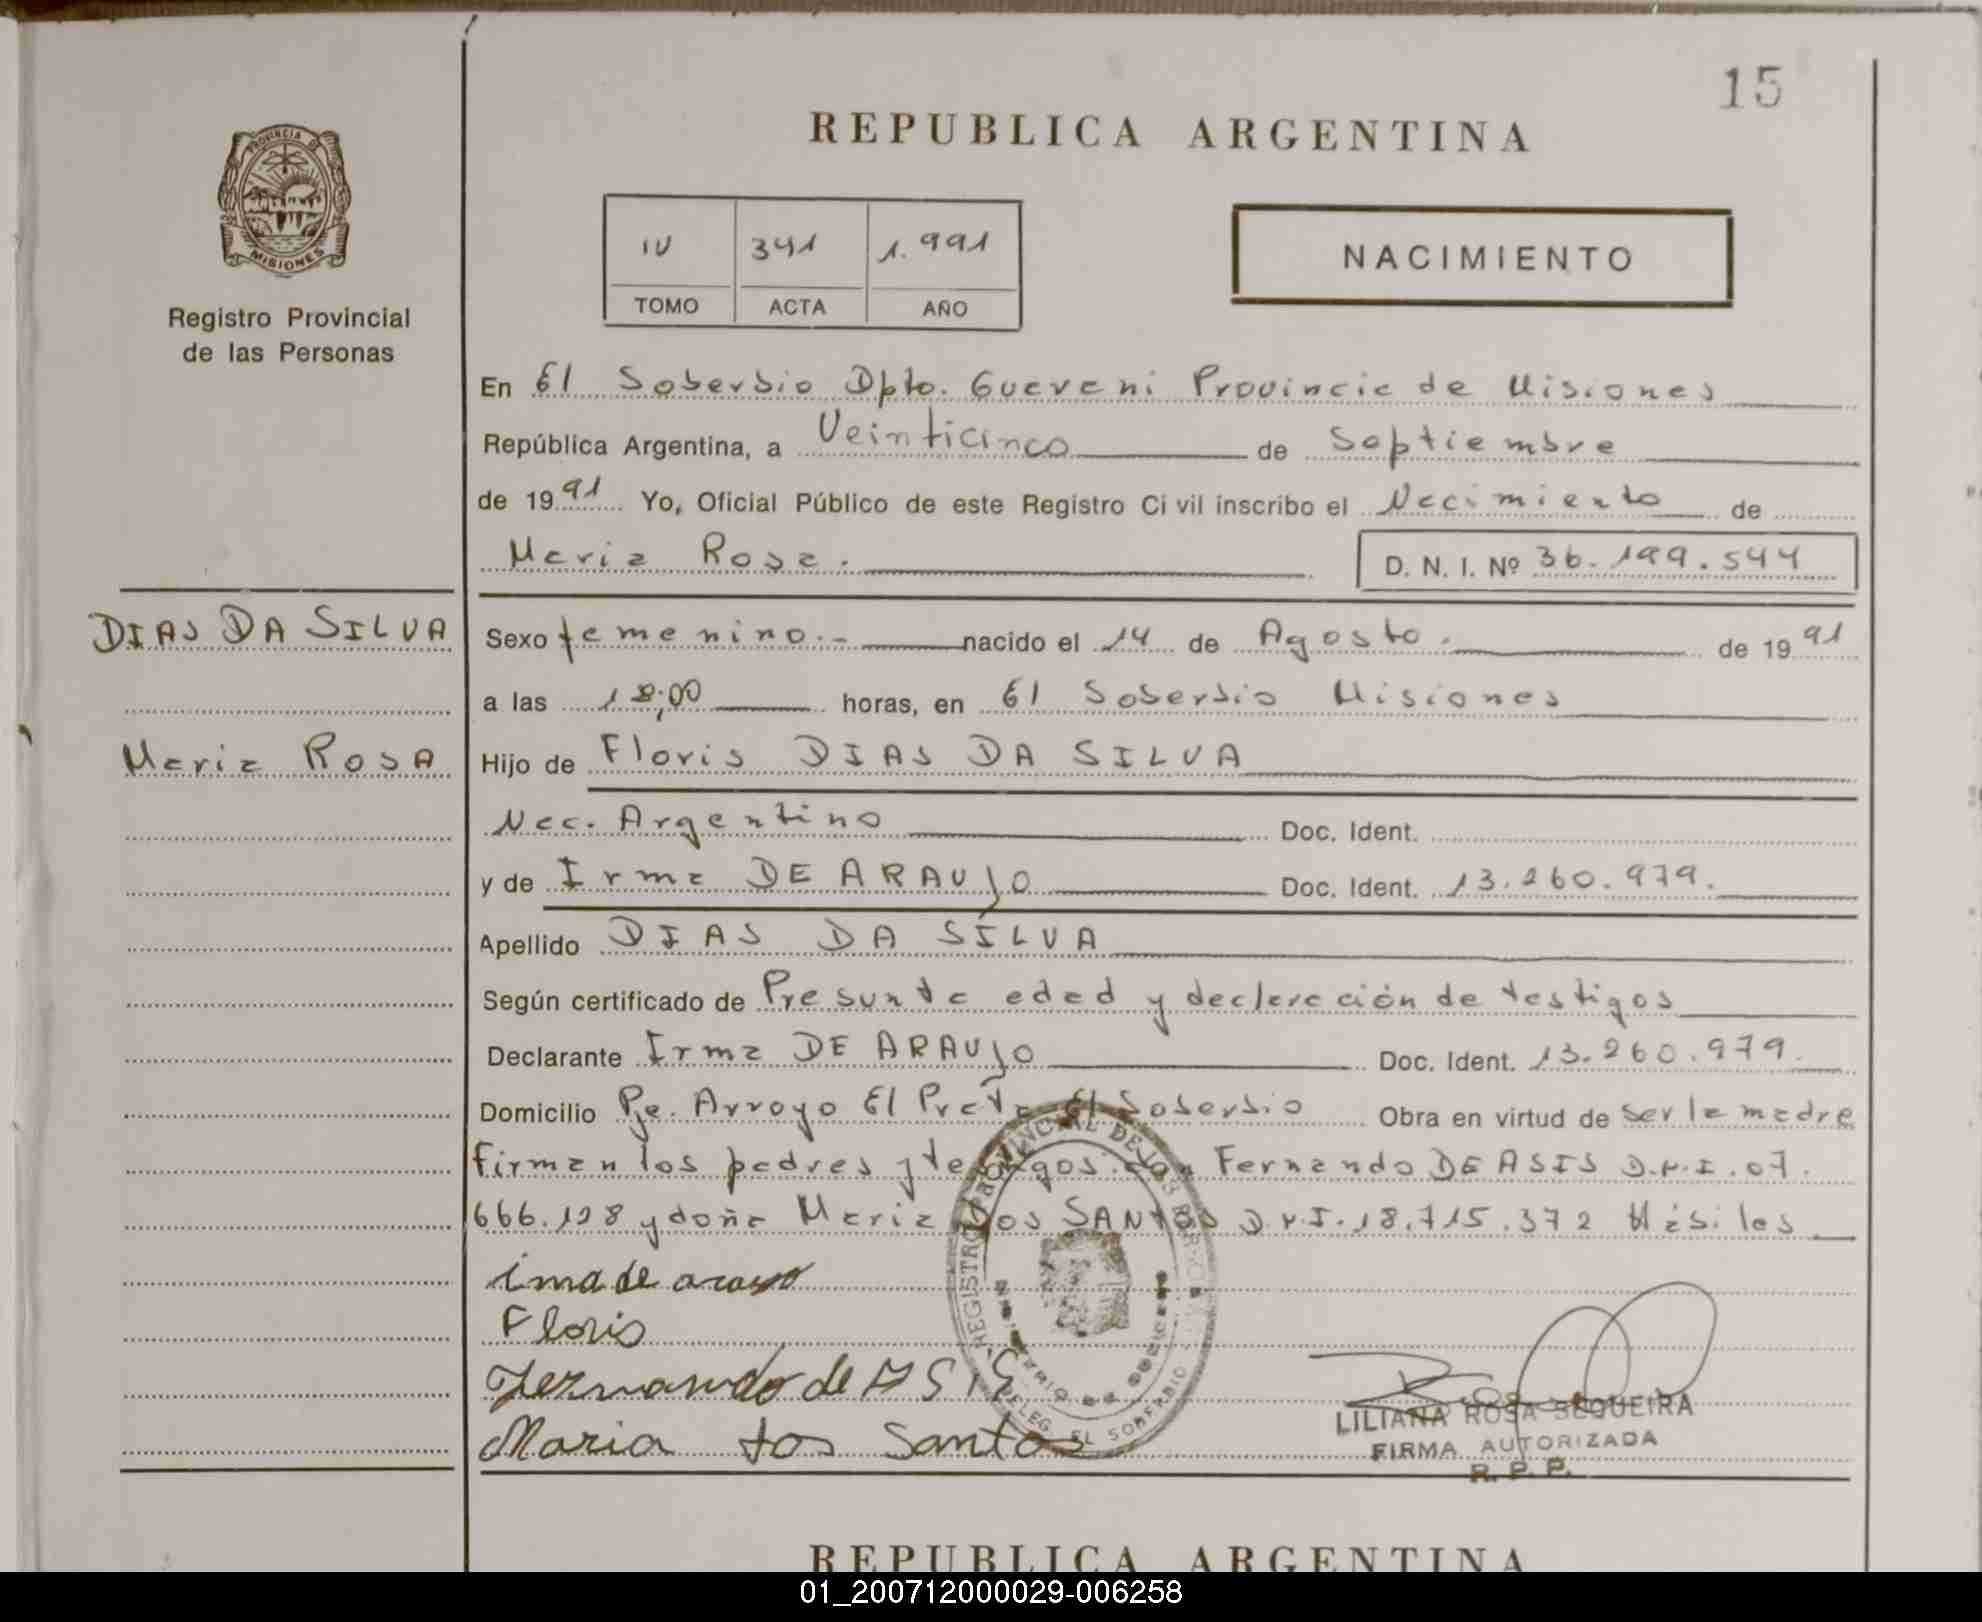 15
REPUBLICA ARGENTINA
PROVINCIA DE
MISIONES
Registro Provincial
de las Personas
IV 341 1.991
TOMO ACTA AÑO
NACIMIENTO
En El Soberbio Dpto. Guarani Provincia de Misiones
República Argentina, a Veinticinco de Septiembre
de 1991 Yo, Oficial Público de este Registro Civil inscribo el Nacimiento de
Maria Rosa. D. N. I. Nº 36.199.544
DIAS DA SILVA
Maria ROSA
Sexo femenino.- nacido el 14 de Agosto. de 1991
a las 18,00 horas, en El Soberbio Misiones
Hijo de Floris DIAS DA SILVA
Nac. Argentino Doc. Ident.
y de Irma DE ARAUJO Doc. Ident. 13.260.979.
Apellido DIAS DA SILVA
Según certificado de Presunta edad y declaración de testigos
Declarante Irma DE ARAUJO Doc. Ident. 13.260.979.
Domicilio Pje. Arroyo El Prata El Soberbio Obra en virtud de ser la madre
firman los padres y testigos: don Fernando DE ASIS D.N.I. 07.
666.128 y doña Maria DOS SANTOS D.N.I. 18.715.372 Hábiles
ima de arauo
Floris
Fernando de ASiS
Maria dos Santos
REGISTRO PROVINCIAL DE LAS PERSONAS
DELEG. EL SOBERBIO
LILIANA ROSA SEQUEIRA
FIRMA AUTORIZADA
R. P. P.
REPUBLICA ARGENTINA
01_200712000029-006258